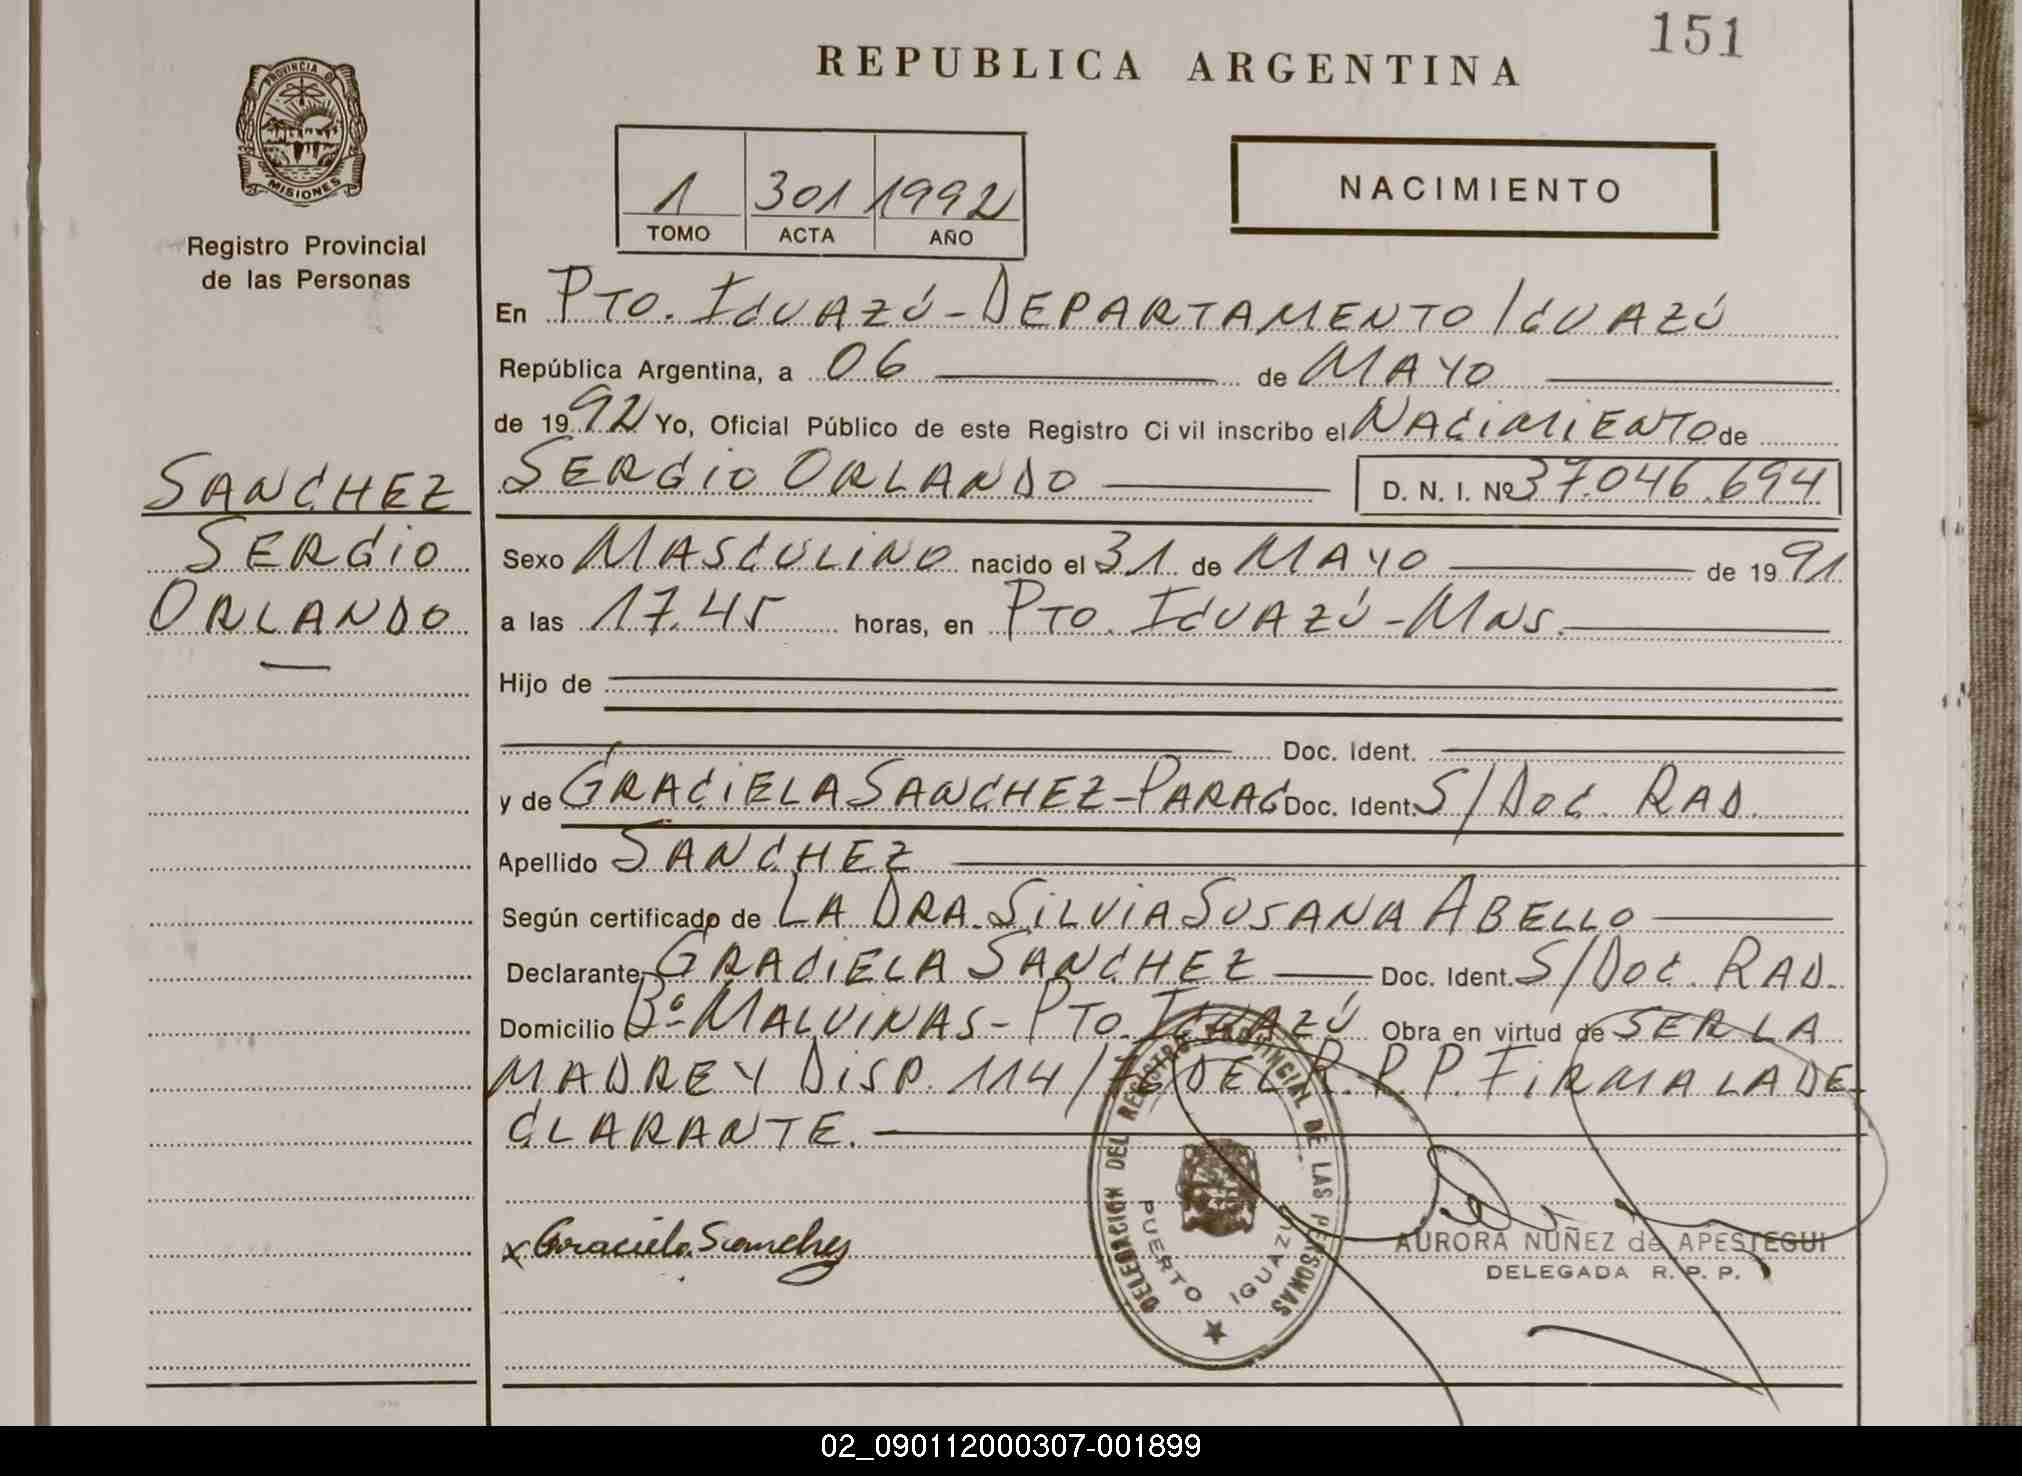 151
REPUBLICA ARGENTINA
PROVINCIA DE
MISIONES
Registro Provincial
de las Personas
1 301 1992
TOMO ACTA AÑO
NACIMIENTO
En PTO. IGUAZÚ - DEPARTAMENTO IGUAZÚ
República Argentina, a 06 de MAYO
de 1992 Yo, Oficial Público de este Registro Civil inscribo el NACIMIENTO de
SERGIO ORLANDO D. N. I. Nº 37.046.694
SANCHEZ
SERGIO
ORLANDO
Sexo MASCULINO nacido el 31 de MAYO de 1991
a las 17.45 horas, en PTO. IGUAZÚ - MNS.
Hijo de
Doc. Ident.
y de GRACIELA SANCHEZ - PARAG Doc. Ident. S/DOC. RAD.
Apellido SANCHEZ
Según certificado de LA DRA. SILVIA SUSANA ABELLO
Declarante GRACIELA SANCHEZ Doc. Ident. S/DOC. RAD.
Domicilio Bº MALVINAS - PTO. IGUAZÚ Obra en virtud de SER LA
MADRE Y DISP. 114/76 DEL R.P.P. FIRMA LA DE-
CLARANTE.
x Graciela Sanchez
DELEGACION DEL REGISTRO PROVINCIAL DE LAS PERSONAS
PUERTO IGUAZU
AURORA NUÑEZ de APESTEGUI
DELEGADA R. P. P.
02_090112000307-001899